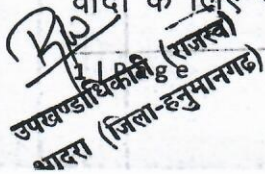 वादी के लिए
1 | Page
उपखण्डाधिकारी (राजस्व)
भादरा (जिला-हनुमानगढ़)